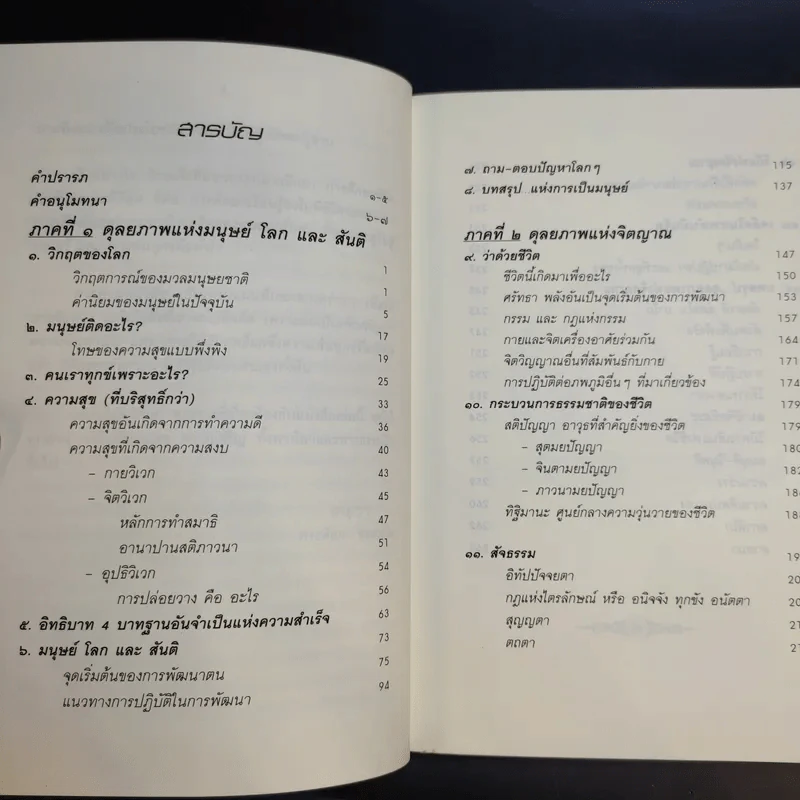 สารบัญ
คำปรารภ
คำอนุโมทนา ๑-๕
๖-๗
ภาคที่ ๑ ดุลยภาพแห่งมนุษย์ โลก และ สันติ
๑. วิกฤตของโลก 1
วิกฤตการณ์ของมวลมนุษยชาติ 1
ค่านิยมของมนุษย์ในปัจจุบัน 5
๒. มนุษย์ติดอะไร? 17
โทษของความสุขแบบพึ่งพิง 19
๓. คนเราทุกข์เพราะอะไร? 25
๔. ความสุข (ที่บริสุทธิ์กว่า) 33
ความสุขอันเกิดจากการทำความดี 36
ความสุขที่เกิดจากความสงบ 40
- กายวิเวก 43
- จิตวิเวก 45
หลักการทำสมาธิ 47
อานาปานสติภาวนา 51
- อุปธิวิเวก 54
การปล่อยวาง คือ อะไร 56
๕. อิทธิบาท 4 บาทฐานอันจำเป็นแห่งความสำเร็จ 63
๖. มนุษย์ โลก และ สันติ 73
จุดเริ่มต้นของการพัฒนาตน 75
แนวทางการปฏิบัติในการพัฒนา 94
๗. ถาม-ตอบปัญหาโลกๆ 115
๘. บทสรุป แห่งการเป็นมนุษย์ 137
ภาคที่ ๒ ดุลยภาพแห่งจิตญาณ
๙. ว่าด้วยชีวิต 147
ชีวิตนี้เกิดมาเพื่ออะไร 150
ศรัทธา พลังอันเป็นจุดเริ่มต้นของการพัฒนา 153
กรรม และ กฎแห่งกรรม 157
กายและจิตเครื่องอาศัยร่วมกัน 164
จิตวิญญาณอื่นที่สัมพันธ์กับกาย 171
การปฏิบัติต่อภพภูมิอื่นๆ ที่มาเกี่ยวข้อง 174
๑๐. กระบวนการธรรมชาติของชีวิต 179
สติปัญญา อาวุธที่สำคัญยิ่งของชีวิต 179
- สุตมยปัญญา 180
- จินตามยปัญญา 182
- ภาวนามยปัญญา
ทิฐิมานะ ศูนย์กลางความวุ่นวายของชีวิต
๑๑. สัจธรรม
อิทัปปัจจยตา
กฎแห่งไตรลักษณ์ หรือ อนิจจัง ทุกขัง อนัตตา
สุญญตา
ตถตา